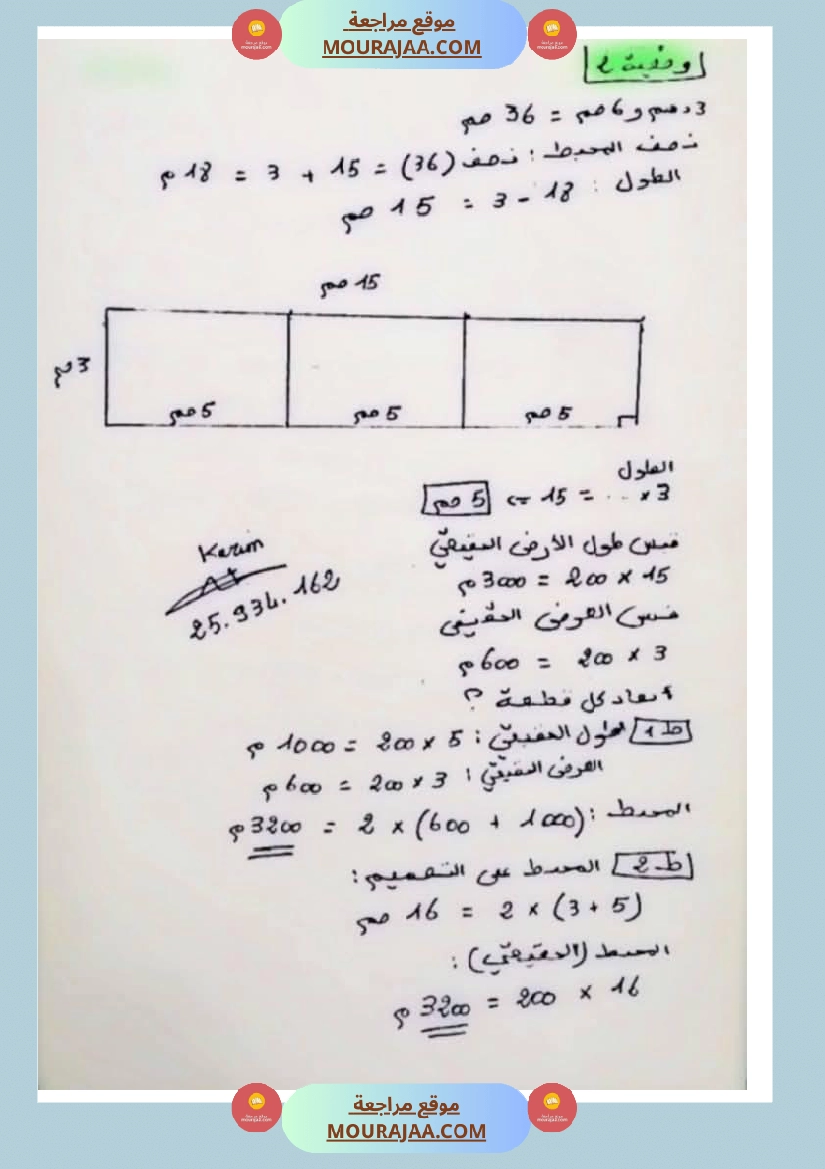 موقع مراجعة
MOURAJAA.COM
وضعية 2
3 دصم و 6 صم = 36 صم
نصف المحيط : نصف (36) = 15 + 3 = 18 م
الطول : 18 - 3 = 15 صم
15 صم
3 صم
5 صم 5 صم 5 صم
الطول
3 × ... = 15 => 5 صم
قيس طول الأرض الحقيقيّ
15 × 200 = 3000 م
قيس العرض الحقيقي
3 × 200 = 600 م
أبعاد كل قطعة ؟
ط 1 الطول الحقيقيّ : 5 × 200 = 1000 م
العرض الحقيقيّ : 3 × 200 = 600 م
المحيط : (1000 + 600) × 2 = 3200 م
ط 2 المحيط على التصميم :
(5 + 3) × 2 = 16 صم
المحيط (الحقيقيّ) :
16 × 200 = 3200 م
Karim
25.934.162
موقع مراجعة
MOURAJAA.COM